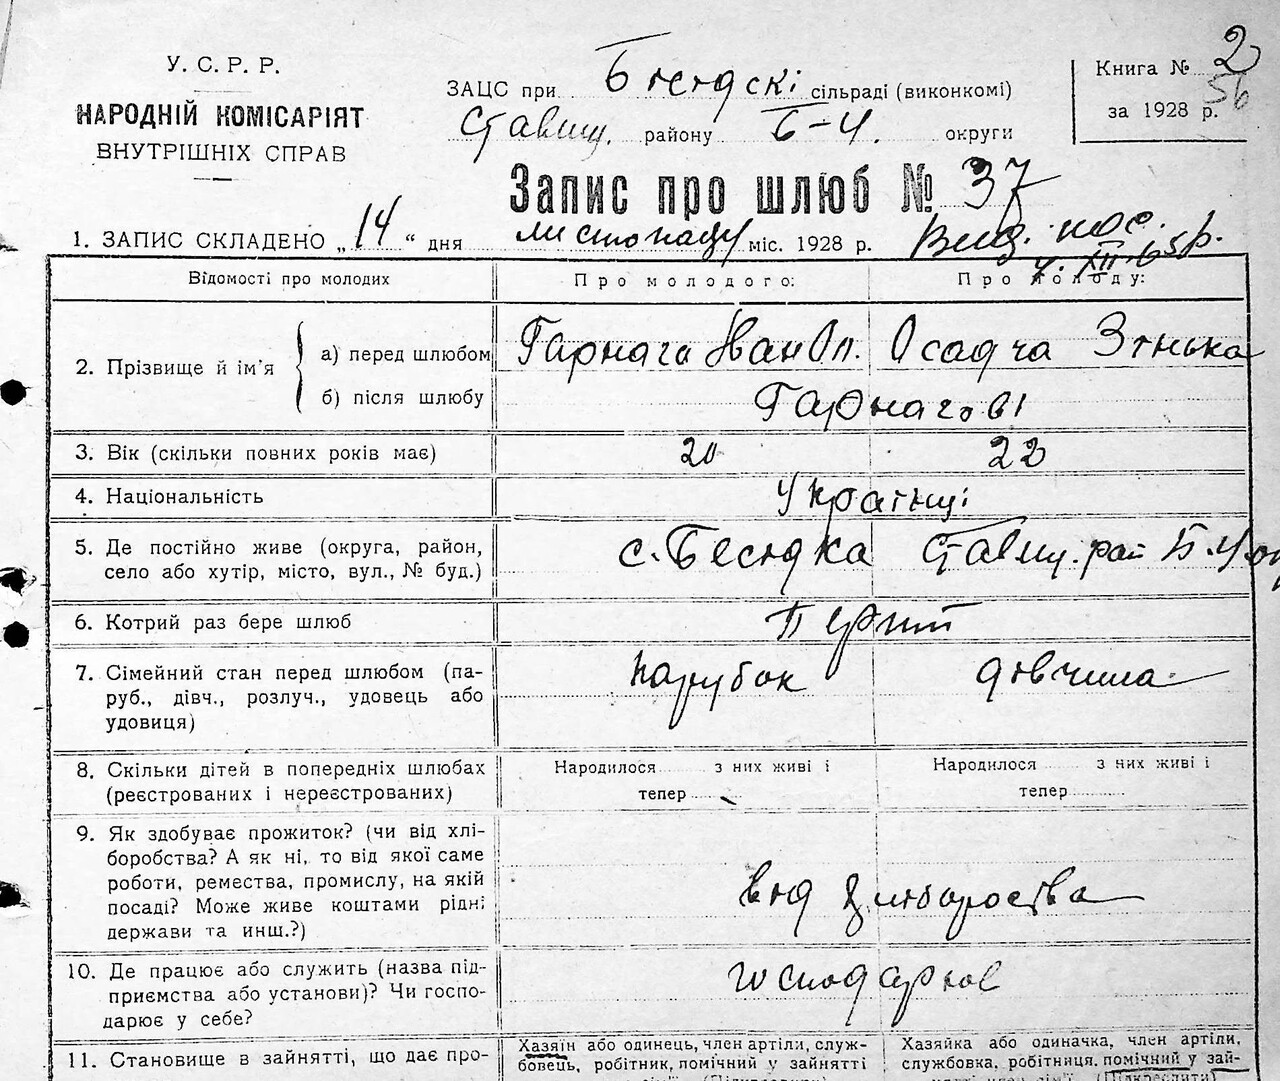 У. С. Р. Р.
НАРОДНІЙ КОМІСАРІЯТ
ВНУТРІШНІХ СПРАВ
ЗАЦС при Бесідскі сільраді (виконкомі)
Ставищ. району Б-Ц. округи
Книга № 2
56
за 1928 р.
Запис про шлюб № 37
1. ЗАПИС СКЛАДЕНО „14“ дня листопаду міс. 1928 р.
Вид. пос.
XII. 65р.
Відомості про молодих
Про молодого:
Про молоду:
2. Прізвище й ім'я
а) перед шлюбом
Гарнага Іван Оп.
Осадча Зінька
б) після шлюбу
Гарнагові
3. Вік (скільки повних років має)
20
22
4. Національність
Українці
5. Де постійно живе (округа, район,
село або хутір, місто, вул., № буд.)
с. Бесідка Ставищ. рай Б.Ц. ок
6. Котрий раз бере шлюб
Перший
7. Сімейний стан перед шлюбом (па-
руб., дівч., розлуч., удовець або
удовиця)
парубок
дівчина
8. Скільки дітей в попередніх шлюбах
(реєстрованих і нереєстрованих)
Народилося з них живі і
тепер
Народилося з них живі і
тепер
9. Як здобуває прожиток? (чи від хлі-
боробства? А як ні, то від якої саме
роботи, ремества, промислу, на якій
посаді? Може живе коштами рідні
держави та инш.?)
від хліборобства
10. Де працює або служить (назва під-
приємства або установи)? Чи госпо-
дарює у себе?
11. Становище в зайнятті, що дає про-
Хазяїн або одинець, член артілі, служ-
бовець, робітник, помічний у зайнятті
Хазяйка або одиначка, член артіли,
службовка, робітниця, помічний у зай-
(Підкреслити)